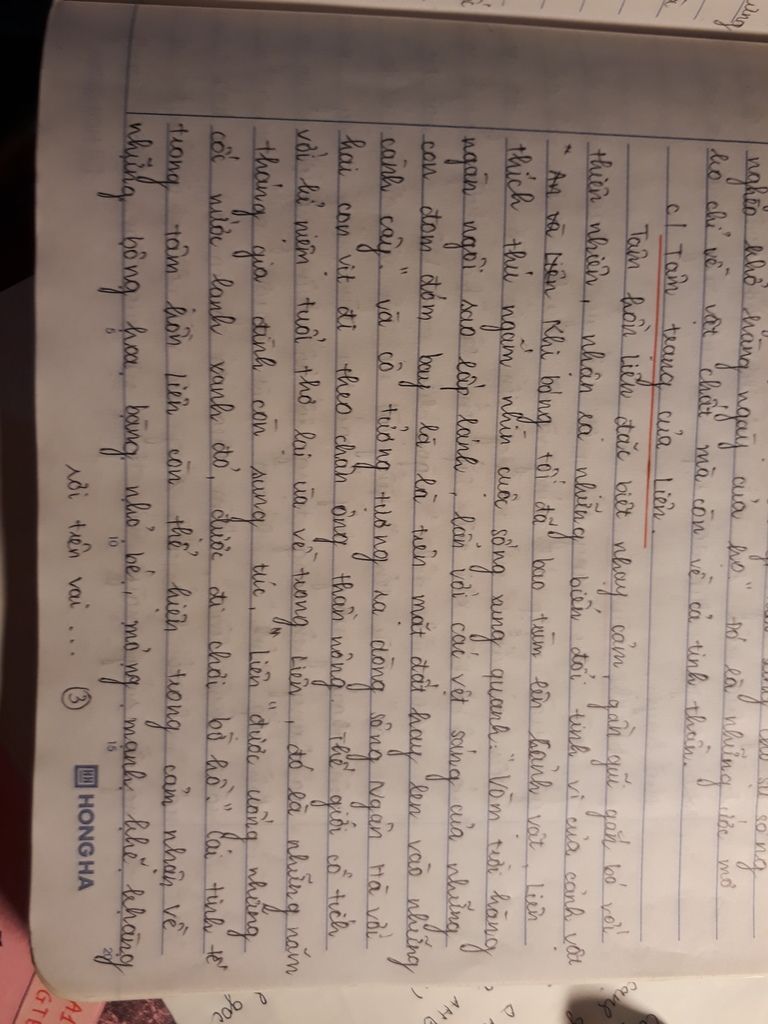 nghèo khổ hằng ngày của họ" đó là những ước mơ
ko chỉ về vật chất mà còn về cả tinh thần.
c/ Tâm trạng của Liên.
Tâm hồn Liên đặc biệt nhạy cảm, gần gũi gắn bó với
thiên nhiên, nhận ra những biến đổi tinh vi của cảnh vật
* An và Liên Khi bóng tối đã bao trùm lên cảnh vật, Liên
thích thú ngắm nhìn cuộc sống xung quanh: "Vòm trời hàng
ngàn ngôi sao lấp lánh, lẫn với cái vệt sáng của những
con đom đóm bay là là trên mặt đất hay len vào những
cành cây." và cô tưởng tượng ra dòng sông Ngân Hà với
hai con vịt đi theo chân ông thần nông. Thế giới cổ tích
với kỉ niệm tuổi thơ lại ùa về trong Liên, đó là những năm
tháng gia đình còn sung túc, "Liên "được uống những
cốc nước lạnh xanh đỏ, được đi chơi bờ hồ." Cái tinh tế
trong tâm hồn Liên còn thể hiện trong cảm nhận về
những bông hoa bàng nhỏ bé, mỏng mạnh khẽ khàng
rơi trên vai... ③
5 10 15 20
HONG HA